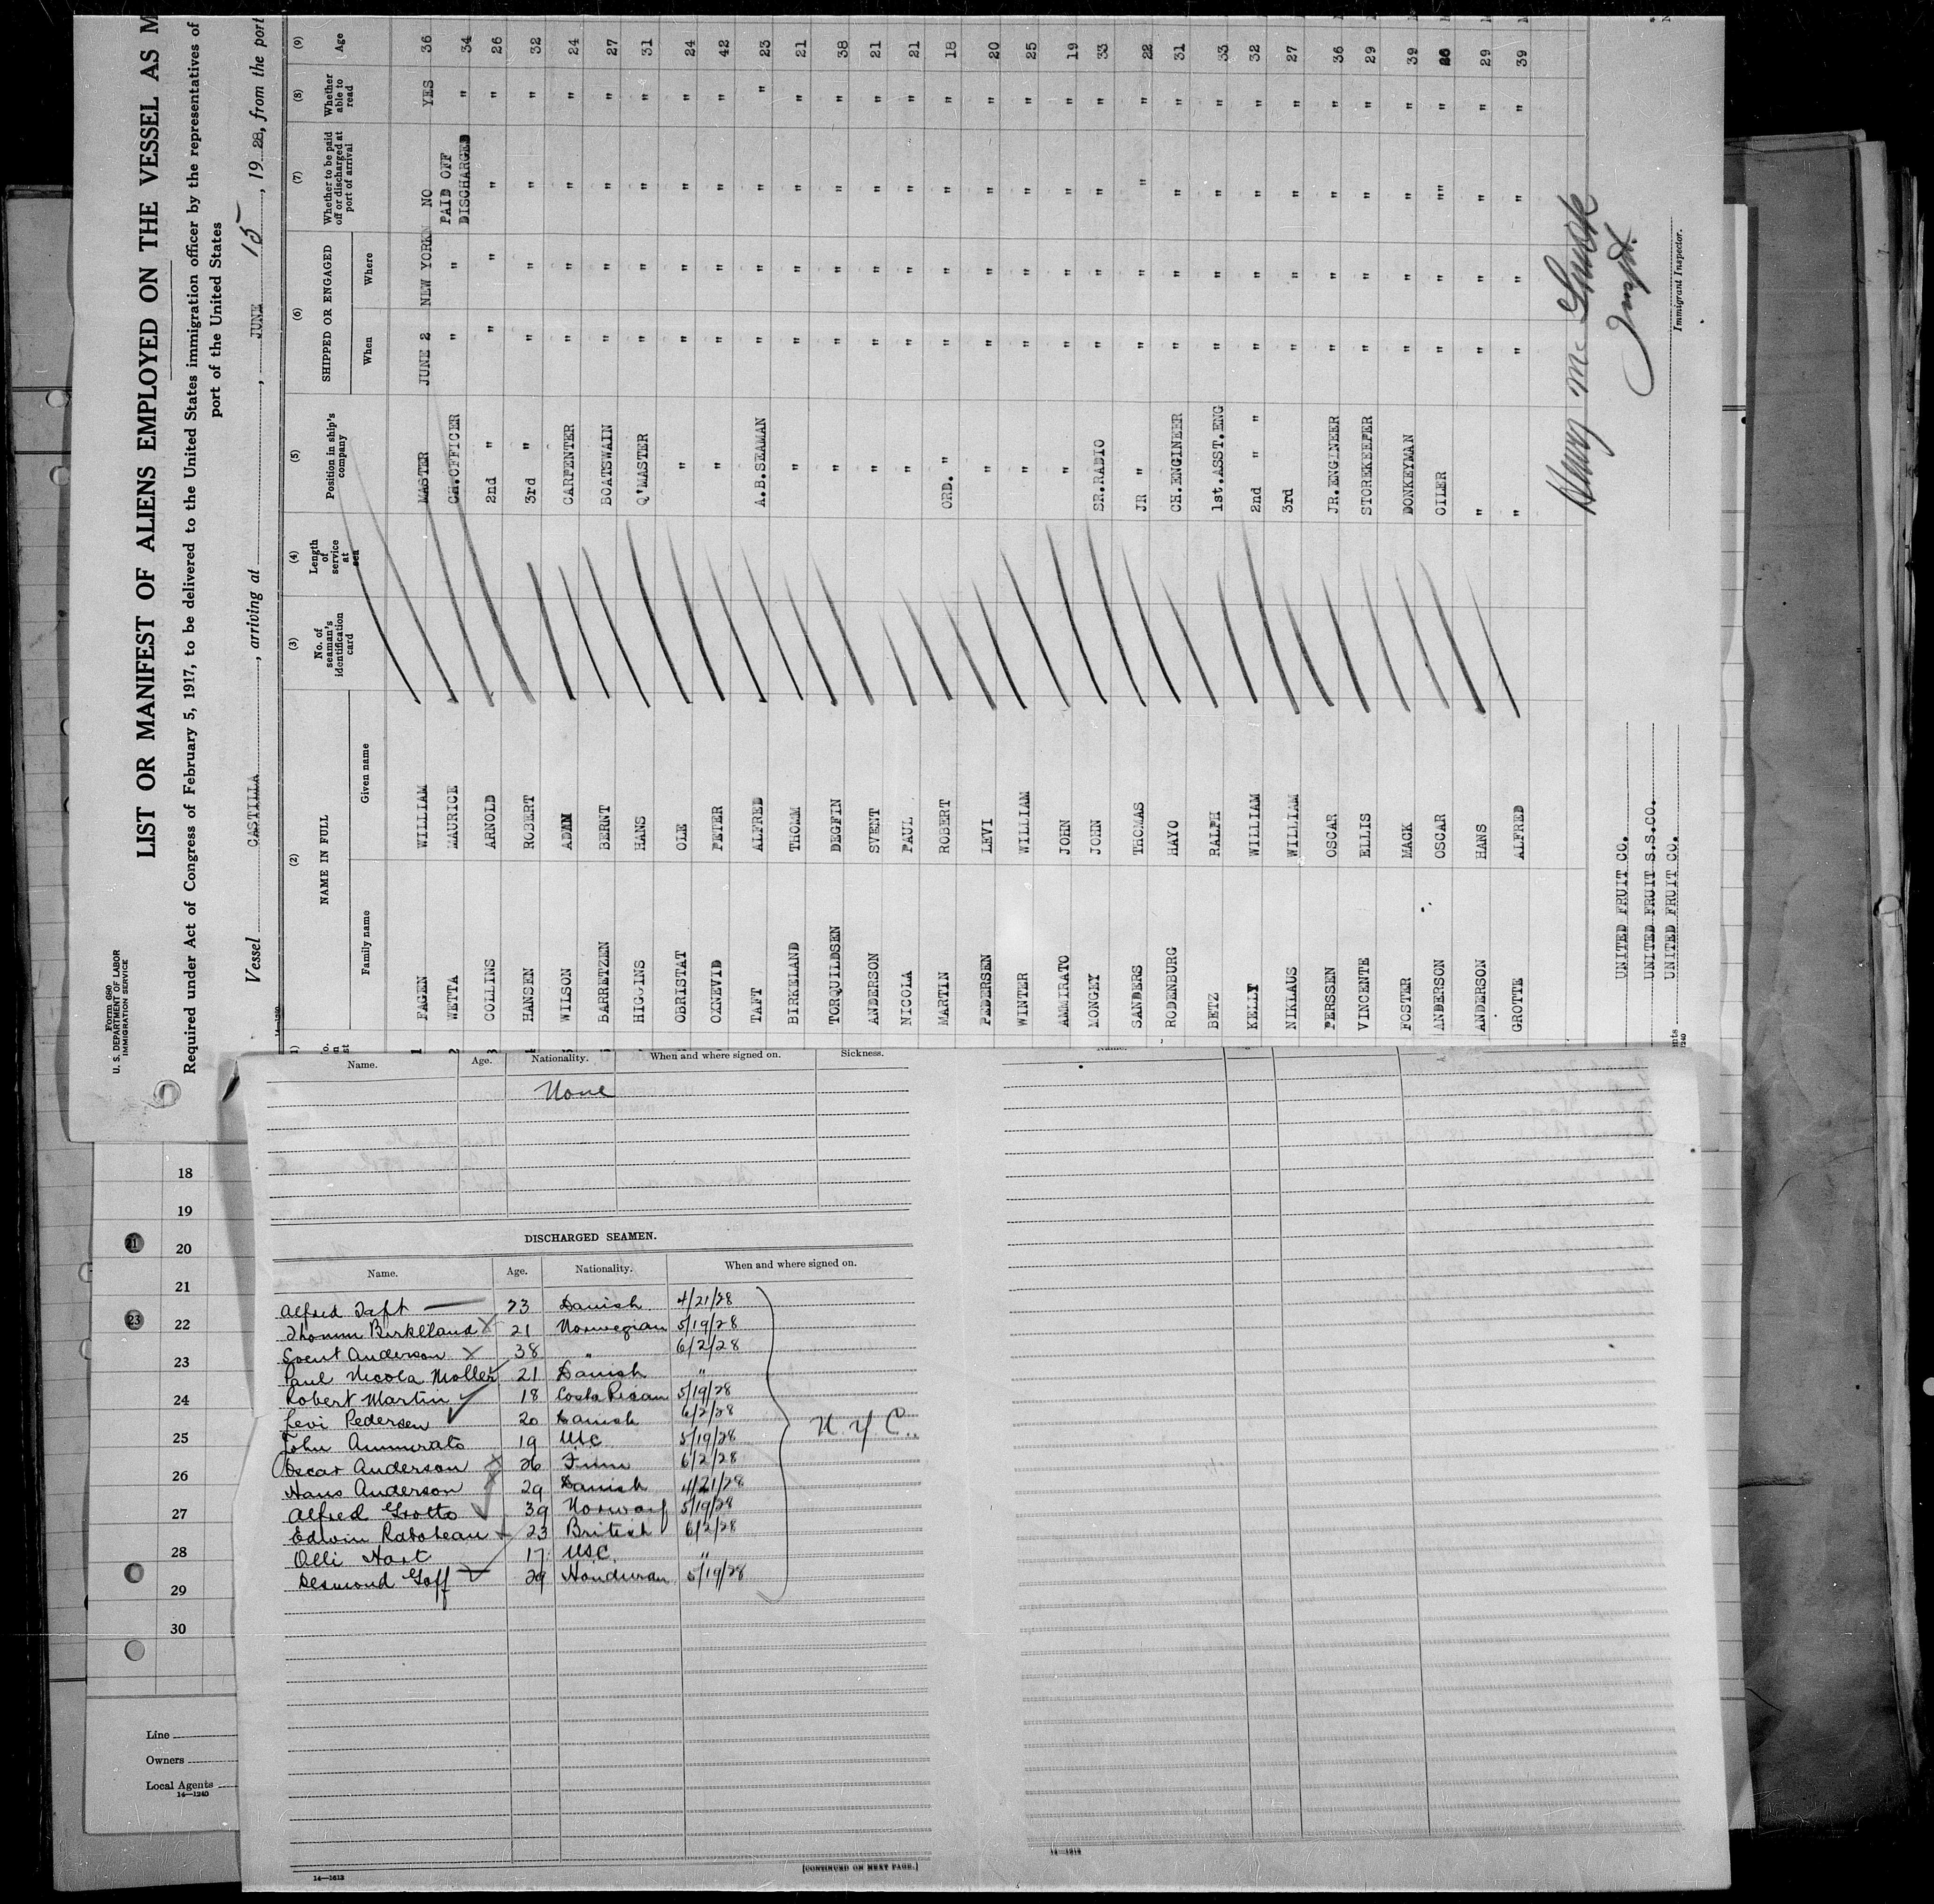 Form 680
U. S. DEPARTMENT OF LABOR
IMMIGRATION SERVICE
LIST OR MANIFEST OF ALIENS EMPLOYED ON THE VESSEL AS M
Required under Act of Congress of February 5, 1917, to be delivered to the United States immigration officer by the representatives of
port of the United States
Vessel CASTILLA, arriving at , JUNE 15, 1928, from the port
14—1240
(2) (3) (4) (5) (6) (7) (8) (9)
NAME IN FULL No. of seaman's identification card Length of service at sea Position in ship's company SHIPPED OR ENGAGED Whether to be paid off or discharged at port of arrival Whether able to read Age
Family name Given name When Where
1 FAGEN WILLIAM MASTER JUNE 2 NEW YORKN NO YES 36
PAID OFF
2 WETTA MAURICE CH.OFFICER " " DISCHARGED " 34
3 COLLINS ARNOLD 2nd " " " " " 26
HANSEN ROBERT 3rd " " " " " 32
WILSON ADAN CARPENTER " " " " 24
BARRETZEN BERNT BOATSWAIN " " " " 27
HIGGINS HANS Q'MASTER " " " " 31
OBRISTAT OLE " " " " " 24
OXNEVID PETER " " " " " 42
TAFT ALFRED A.B.SEAMAN " " " " 23
BIRKELAND THOMM " " " " " 21
TORQUILDSEN DEGFIN " " " " " 38
ANDERSON SVENT " " " " " 21
NICOLA PAUL " " " " " 21
MARTIN ROBERT ORD. " " " " " 18
PEDERSEN LEVI " " " " " 20
WINTER WILLIAM " " " " " 25
AMMIRATO JOHN " " " " " 19
MONGEY JOHN SR.RADIO " " " " 33
SANDERS THOMAS JR " " " " " 22
RODENBURG HAYO CH.ENGINEER " " " " 31
BETZ RALPH 1st.ASST.ENG " " " " 33
KELLY WILLIAM 2nd " " " " " " 32
NIKLAUS WILLIAM 3rd " " " " 27
PERSSEN OSCAR JR.ENGINEER " " " " 36
VINCENTE ELLIS STOREKEEPER " " " " 29
FOSTER MACK DONKEYMAN " " " " 39
ANDERSON OSCAR OILER " " "" " 26
ANDERSON HANS " " " " " 29
GROTTE ALFRED " " " " " 39
Henry Mc
UNITED FRUIT CO.
UNITED FRUIT S.S.CO.
UNITED FRUIT CO.
Immigrant Inspector.
Name. Age. Nationality. When and where signed on. Sickness.
None
DISCHARGED SEAMEN.
Name. Age. Nationality. When and where signed on.
Alfred Taft 23 Danish 4/21/28
Thomm Birkeland X 21 Norwegian 5/19/28
Svent Anderson X 38 " 6/2/28
Paul Nicola Moller 21 Danish "
Robert Martin 18 Costa Rican 5/19/28
Levi Pedersen 20 Danish 6/2/28
John Ammerato 19 USC 5/19/28
Oscar Anderson X 26 Finn 6/2/28
Hans Anderson 29 Danish 4/21/28
Alfred Grotto 39 Norway 5/19/28
Edwin Raboteau 23 British 6/2/28
Olli Hart 17 USC "
Desmond Goff 29 Honduran 5/19/28
N. Y C.
[CONTINUED ON NEXT PAGE.]
14—1612
14—1612
18
19
20
21
22
23
24
25
26
27
28
29
30
21
23
Line
Owners
Local Agents
14—1240